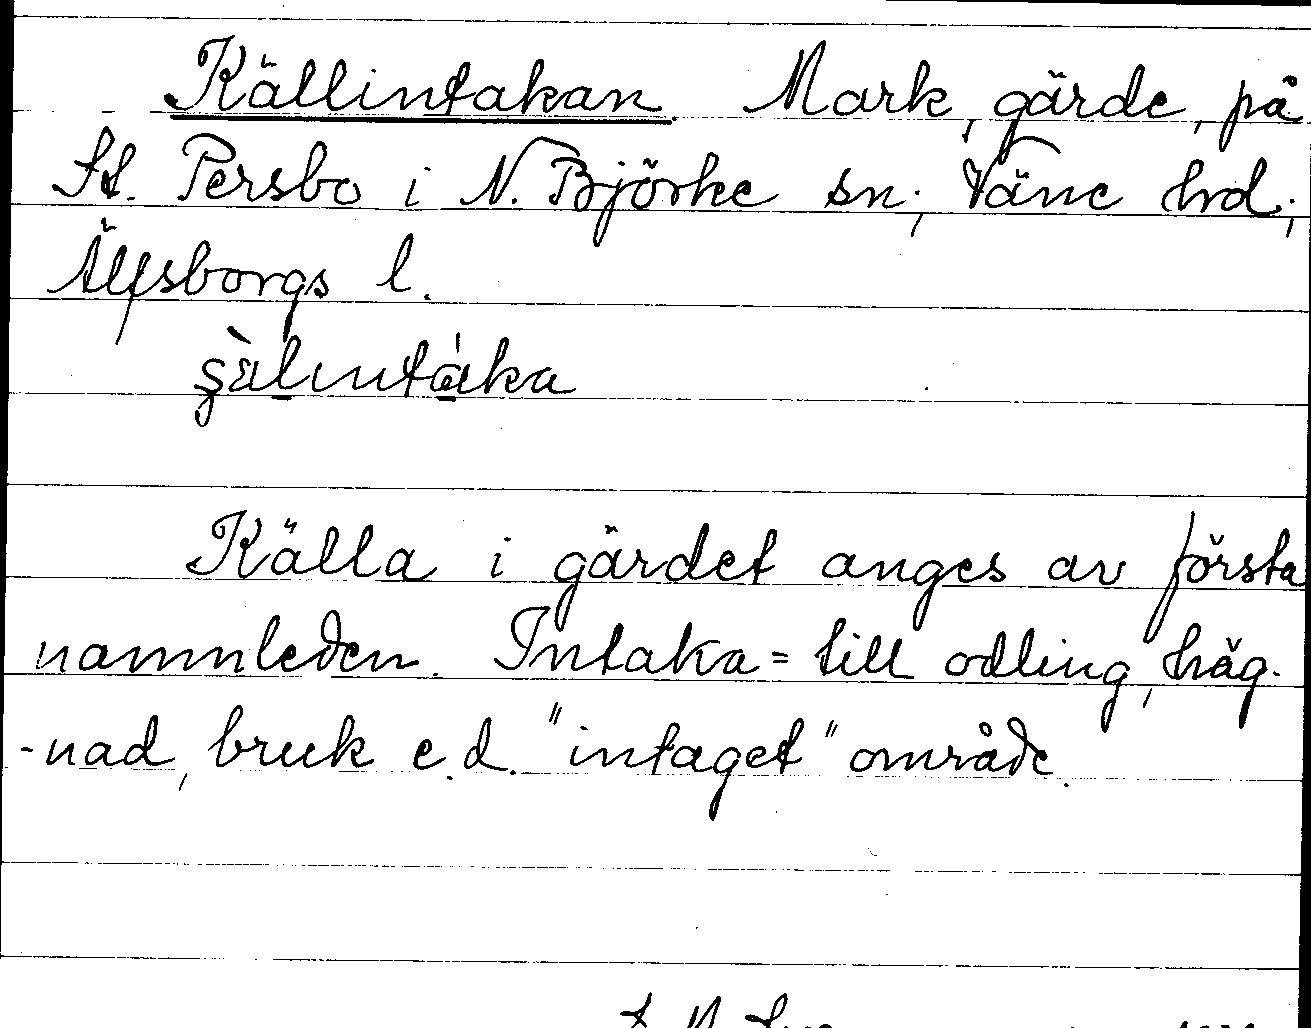 Källintakan Mark, gärde, på
St. Persbo i N. Björke sn; Väne hd;
Älfsborgs l.
Källa i gärdet anges av första
namnleden. Intaka = till odling, häg-
-nad, bruk e.d. "intaget" område.